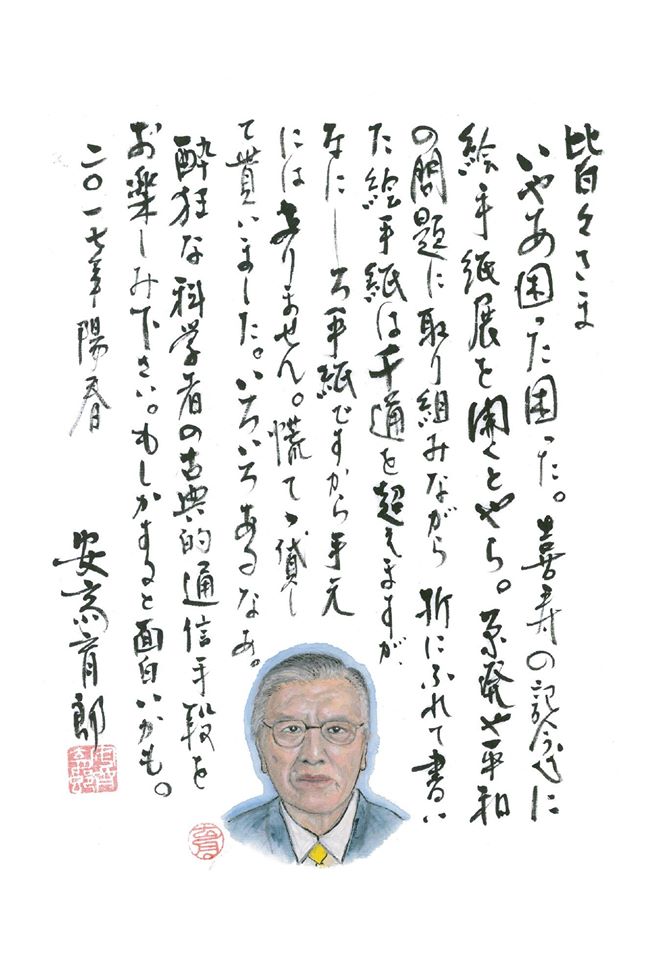 皆々さま
いやあ困った困った。喜寿の記念に
絵手紙展を開くとやら。原発や平和
の問題に取り組みながら折にふれて書い
た絵手紙は千通を超えますが、
なにしろ手紙ですから手元
にはありません。慌てて貸し
て貰いました。いろいろあるなあ。
酔狂な科学者の古典的通信手段を
お楽しみ下さい。もしかすると面白いかも。
二〇一七年陽春
安斎育郎